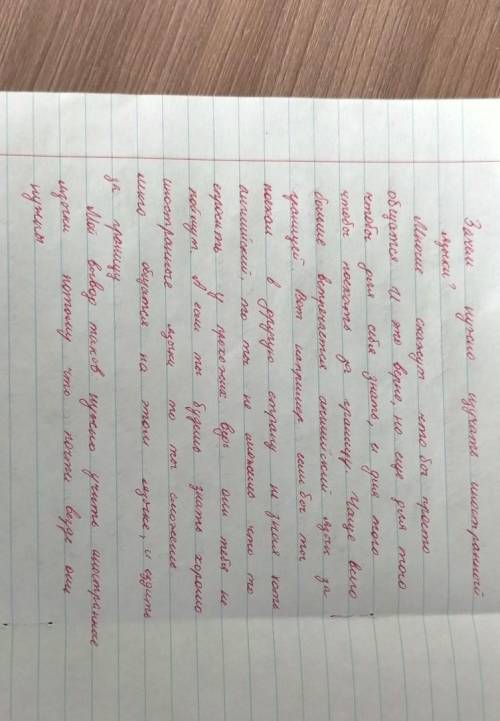 Зачем нужно изучать иностранной
язык?
Многие скажут что бог просто
общатся И это верно, но еще для того
чтобы для себя знать, и для того
чтобы поехать за границу. Чаще всего
больше встречается английский язык за
границей. Вот например если бог ты
поехал в другую страну не зная хоть
английский, то ты не можешь что то
спросить у прохожих ведь они тебя не
поймут. А если ты будешь знать хорошо
иностранные языки то ты сможешь
легко общатся на этом языке, и ездить
за границу.
Мой вывод таков нужно учить иностранные
языки потому что почти везде они
нужны